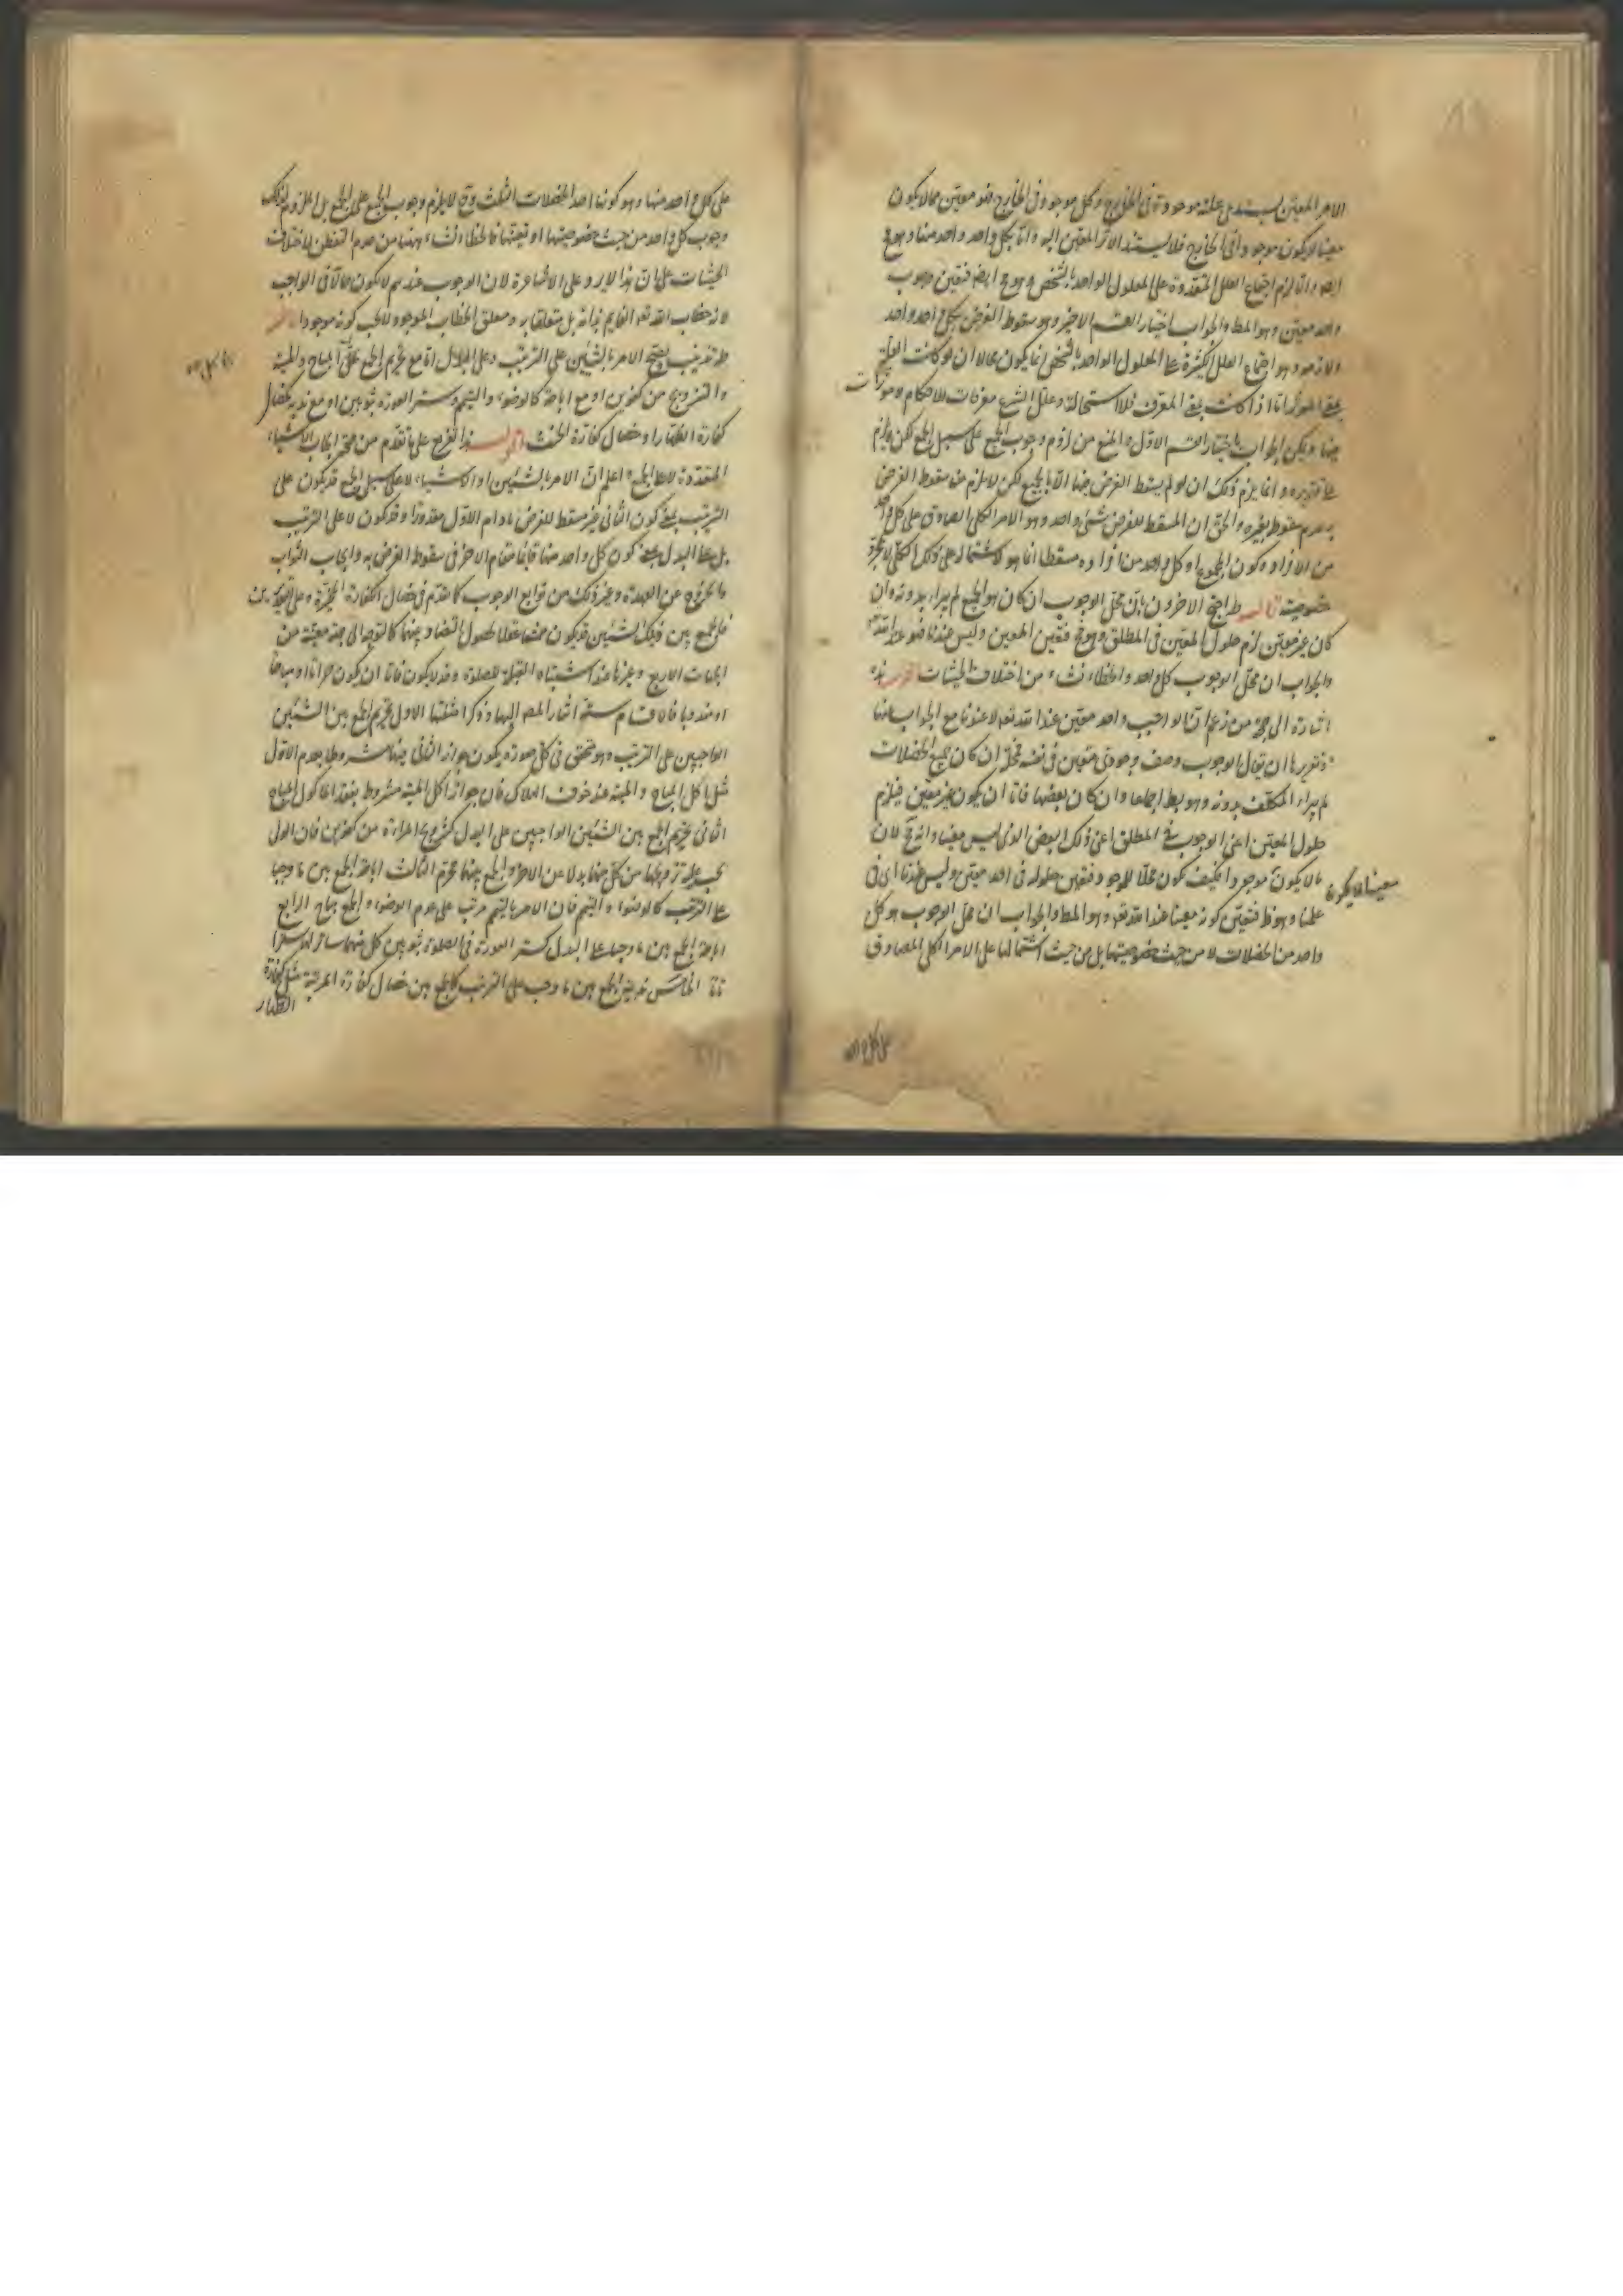 الامر المعين يستدعى علة موجودة فى الخارج وكل موجود فى الخارج فهو معين فما لا يكون
معينا لا يكون موجودا فى الخارج فلا يستند الاثر المعين اليه واما بكل واحد واحد منها وهو مح
ايضا والا لزم اجتماع العلل المتعددة على المعلول الواحد بالشخص وهو مح ايضا فتعين وجوب
واحد معين وهو المط والجواب اختيار القسم الاخير وهو سقوط الفرض بكل واحد واحد
ولازمه وهو اجتماع العلل الكثيرة على المعلول الواحد بالشخص انما يكون محالا ان لو كانت العلة
بمعنى المؤثر اما اذا كانت بمعنى المعرف فلا استحالة وعلل الشرع معرفات للاحكام لا مؤثرات
فيها ويمكن الجواب باختيار القسم الاول والمنع من لزوم وجوب الجميع على سبيل الجمع لكن يلزم
على تقديره وانما يلزم ذلك ان لو لم يسقط الفرض فيها الا بالجميع لكن لا يلزم من سقوط الفرض
به عدم سقوطه بغيره والحق ان المسقط للفرض شئ واحد وهو الامر الكلى الصادق على كل واحد
من الافراد وكون المجموع او كل واحد من افراده مسقطا انما هو لاشتماله على ذلك الكلى لا لمجرد
خصوصيته قال ط احتج الاخرون بان محل الوجوب ان كان هو الجميع لم يبرأ بدونه وان
كان غير معين لزم حلول المعين فى المطلق وهو مح فتعين المعين وليس عندنا فهو عند الله
والجواب ان محل الوجوب كل واحد والخطاء نشاء من اختلاف الحيثيات اقول هذه
اشارة الى حجة من زعم ان الواجب واحد معين عند الله تعه لا عندنا مع الجواب عنها
وتقريرها ان يقال الوجوب وصف وجودى متعين فى نفسه فمحله ان كان جميع الخصلات
لم يبرأ المكلف بدونه وهو بط اجماعا وان كان بعضها فاما ان يكون غير معين فيلزم
حلول المعين اعنى الوجوب فى المطلق اعنى ذلك البعض الذى ليس معينا وانه مح لان
ما لا يكون موجودا فكيف يكون محلا للموجود فتعين حلوله فى واحد معين وليس عندنا اى فى
معينا لا يكون
علمنا وهو ظ فتعين كونه معينا عند الله تعه وهو المط والجواب ان محل الوجوب هو كل
واحد من الخصلات لا من حيث خصوصيتها بل من حيث اشتمالها على الامر الكلى الصادق
على كل واحد
على كل واحد منها وهو كونها احد الخصلات الثلث وح لا يلزم وجوب الجميع على الجمع بل اللازم لذلك
وجوب كل واحد من حيث خصوصيتها او تعينها فالخطاء نشاء ههنا من عدم التفطن لاختلاف
الحيثيات على ان هذا لا يرد على الاشاعرة لان الوجوب عندهم لا يكون حالا فى الواجب
لانه خطاب الله تعه القايم بذاته بل متعلقا به ومتعلق الخطاب الموجود لا يجب كونه موجودا قال
ط تذنيب يصح الامر بالشيئين على الترتيب وعلى البدل اما مع تحريم الجمع كاكل المباح والميتة
والتزويج من كفوين او مع اباحته كالوضوء والتيمم وستر العورة بثوبين او مع ندبه كخصال
كفارة الظهار وخصال كفارة الحنث اقول هذا تفريع على ما تقدم من صحة ايجاب الاشياء
المتعددة لا على الجمع واعلم ان الامر بالشيئين او الاشياء لا على سبيل الجمع قد يكون على
الترتيب بمعنى كون الثانى غير مسقط للفرض ما دام الاول مقدورا وقد يكون لا على الترتيب
بل على البدل بمعنى كون كل واحد منها قائما مقام الاخر فى سقوط الفرض به وايجاب الثواب
والخروج عن العهدة وغير ذلك من توابع الوجوب كما تقدم فى خصال الكفارة المخيرة وعلى التقديرين
فالجمع بين ذينك الشيئين قد يكون ممتنعا عقلا لحصول التضاد بينهما كالتوجه الى جهة معينة من
الجهات الاربع وغيرها عند اشتباه القبلة للصلوة وقد لا يكون فاما ان يكون حراما او مباحا
او مندوبا فالاقسام ستة اشار المصـ اليها وذكر امثلتها الاول تحريم الجمع بين الشيئين
الواجبين على الترتيب وهو يتحقق فى كل صورة يكون جواز الثانى فيها مشروطا بعدم الاول
مثل اكل المباح والميتة عند خوف الهلاك فان جواز اكل الميتة مشروط بفقد الماكول المباح
الثانى تحريم الجمع بين الشيئين الواجبين على البدل كتزويج المراءة من كفوين فان الولى
يجب عليه تزويجها من كل منهما بدلا عن الاخر والجمع بينهما محرم الثالث اباحة الجمع بين ما وجبا
على الترتيب كالوضوء والتيمم فان الامر بالتيمم مرتب على عدم الوضوء والجمع مباح الرابع
اباحة الجمع بين ما وجبا على البدل كستر العورة فى الصلوة بثوبين كل منهما ساتر لها سترا
تاما الخامس ندبية الجمع بين ما وجب على الترتيب كالجمع بين خصال كفارة المرتبة مثل كفارة
الظهار